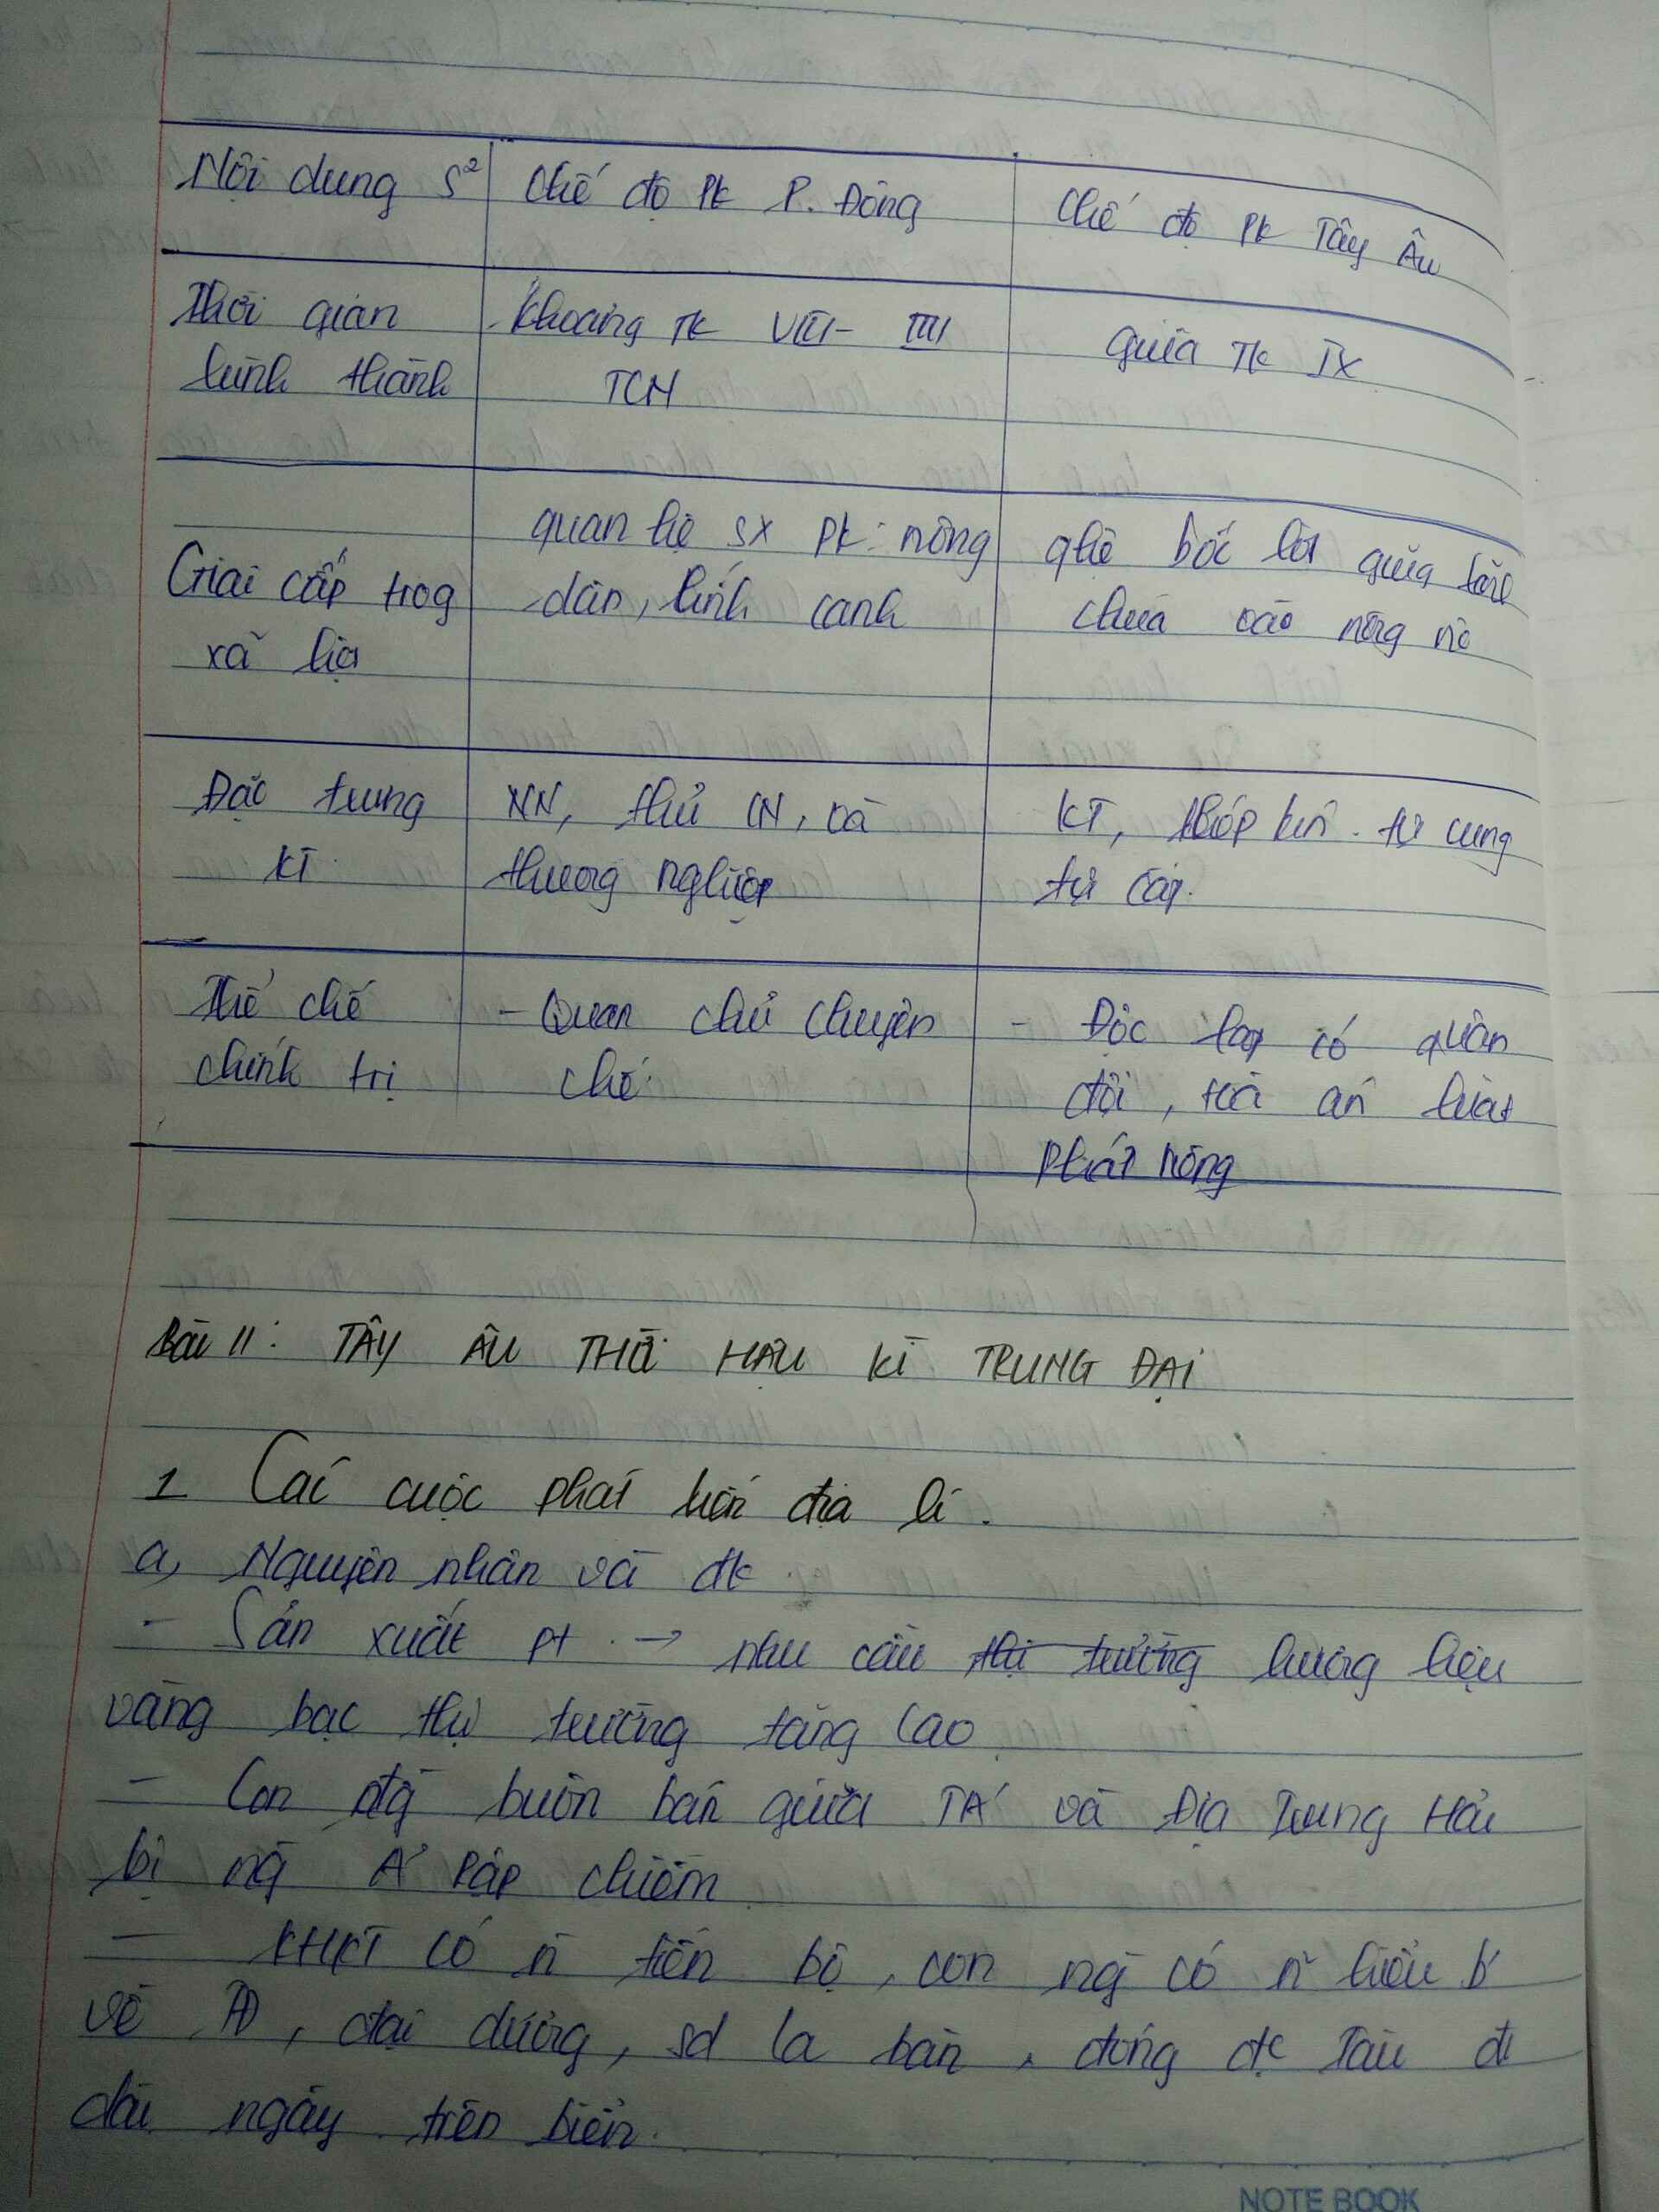 Nội dung S² Chế độ PK P. Đông Chế độ PK Tây Âu
Thời gian khoảng TK VIII - III giữa TK IX
hình thành TCN
quan hệ sx PK: nông qhệ bóc lột giữa lãnh
Giai cấp trog dân, lĩnh canh chúa vào nông nô
xã hội
Đặc trưng NN, thủ CN, và KT, khép kín. tự cung
KT thương nghiệp tự cấp.
Thể chế - Quân chủ chuyên - Độc lập có quân
chính trị chế. đội, toà án luật
pháp riêng
Bài 11: TÂY ÂU THỜI HẬU KÌ TRUNG ĐẠI
1 Các cuộc phát kiến địa lí.
a, Nguyên nhân và đk
- Sản xuất pt → nhu cầu thị trường hương liệu
vàng bạc thị trường tăng cao
- Con đg buôn bán giữa TÁ và Địa Trung Hải
bị ng Ả Rập chiếm
- KHKT có n tiến bộ, con ng có n hiểu b
về TĐ, đại dương, sd la bàn, đóng đc tàu đi
dài ngày trên biển.
NOTE BOOK